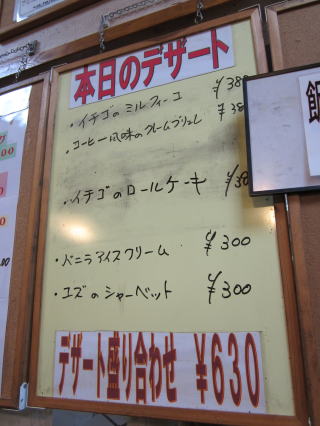 本日のデザート
・イチゴのミルフィーユ ¥380
・コーヒー風味のクレームブリュレ ¥38
・イチゴのロールケーキ ¥38
・バニラアイスクリーム ¥300
・ユズのシャーベット ¥300
デザート盛り合わせ ¥630
飯